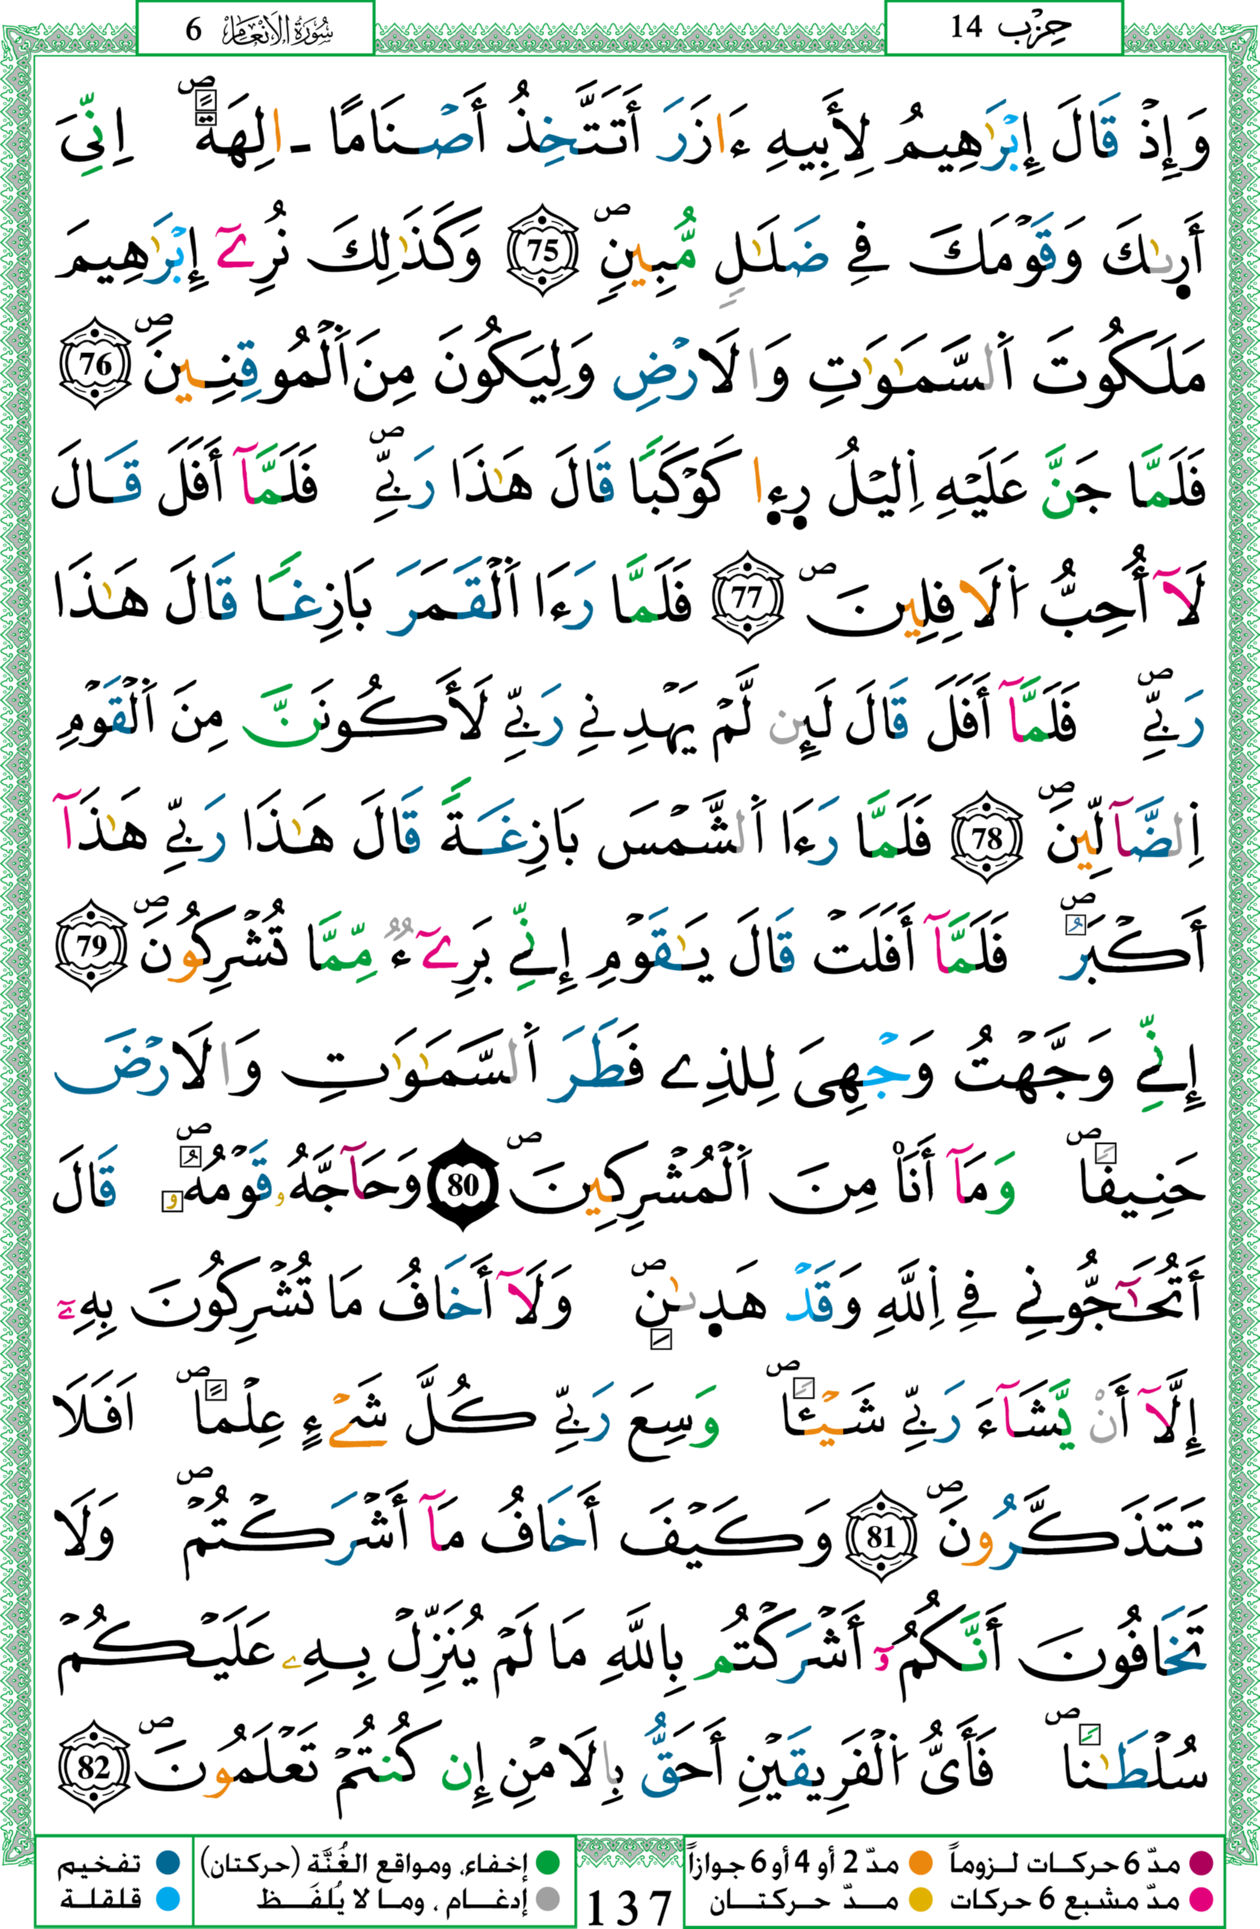 سُورَةُ الأَنْعَام 6
حِزْب 14
وَإِذْ قَالَ إِبْرَٰهِيمُ لِأَبِيهِ ءَازَرَ أَتَتَّخِذُ أَصْنَامًا ـاٰلِهَةًۖ اِنِّىَ
أَر۪ىٰكَ وَقَوْمَكَ فِے ضَلَٰلٖ مُّبِينٖۖ 75 وَكَذَٰلِكَ نُرِےٓ إِبْرَٰهِيمَ
مَلَكُوتَ اَ۬لسَّمَٰوَٰتِ وَالَارْضِ وَلِيَكُونَ مِنَ اَ۬لْمُوقِنِينَۖ 76
فَلَمَّا جَنَّ عَلَيْهِ اِ۬ليْلُ ر۪ء۪ا كَوْكَباٗ قَالَ هَٰذَا رَبِّےۖ فَلَمَّآ أَفَلَ قَالَ
لَآ أُحِبُّ اُ۬لَافِلِينَۖ 77 فَلَمَّا رَءَا اَ۬لْقَمَرَ بَازِغاٗ قَالَ هَٰذَا
رَبِّےۖ فَلَمَّآ أَفَلَ قَالَ لَئِن لَّمْ يَهْدِنِے رَبِّے لَأَكُونَنَّ مِنَ اَ۬لْقَوْمِ
اِ۬لضَّآلِّينَۖ 78 فَلَمَّا رَءَا اَ۬لشَّمْسَ بَازِغَةٗ قَالَ هَٰذَا رَبِّے هَٰذَآ
أَكْبَرُۖ فَلَمَّآ أَفَلَتْ قَالَ يَٰقَوْمِ إِنِّے بَرِےٓءٞ مِّمَّا تُشْرِكُونَۖ 79
إِنِّے وَجَّهْتُ وَجْهِىَ لِلذِے فَطَرَ اَ۬لسَّمَٰوَٰتِ وَالَارْضَ
حَنِيفاٗۖ وَمَآ أَنَا۠ مِنَ اَ۬لْمُشْرِكِينَۖ 80 وَحَآجَّهُۥ قَوْمُهُۥۖ قَالَ
أَتُحَٰٓجُّونِے فِے اِ۬للَّهِ وَقَدْ هَد۪ىٰنِۖ وَلَآ أَخَافُ مَا تُشْرِكُونَ بِهِۦٓ
إِلَّآ أَنْ يَّشَآءَ رَبِّے شَيْـٔاٗۖ وَسِعَ رَبِّے كُلَّ شَےْءٍ عِلْماًۖ اَفَلَا
تَتَذَكَّرُونَۖ 81 وَكَيْفَ أَخَافُ مَآ أَشْرَكْتُمْۖ وَلَا
تَخَافُونَ أَنَّكُمُۥٓ أَشْرَكْتُم بِاللَّهِ مَا لَمْ يُنَزِّلْ بِهِۦ عَلَيْكُمْ
سُلْطَٰناٗۖ فَأَىُّ اُ۬لْفَرِيقَيْنِ أَحَقُّ بِالَامْنِ إِن كُنتُمْ تَعْلَمُونَۖ 82
مدّ 6 حركات لـزوماً مدّ 2 أو 4 أو 6 جوازاً
مدّ مشبع 6 حركات مـدّ حـركتـان
137
إخفاء، ومواقع الغُنَّة (حركتان) تفخيم
إدغـام ، ومـا لا يُلفَـظ قلقلة